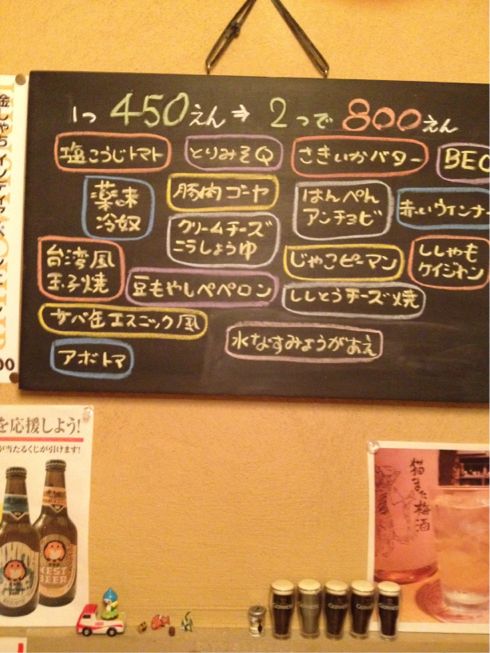 1つ 450えん ⇒ 2つで 800えん
塩こうじトマト とりみそQ さきいかバター BEC
薬味
冷奴
豚肉ゴーヤ
はんぺん
アンチョビ
赤いウインナー
クリームチーズ
こうしょうゆ
台湾風
玉子焼
豆もやしペペロン
じゃこピーマン
ししゃも
ケイジャン
ししとうチーズ焼
サバ缶エスニック風
水なすみょうがあえ
アボトマ
金しゃち インディア
00
を応援しよう!
が当たるくじが引けます!
NEST
BEER
猫また梅酒
GUINNESS
GUINNESS
GUINNESS
GUINNESS
GUINNESS